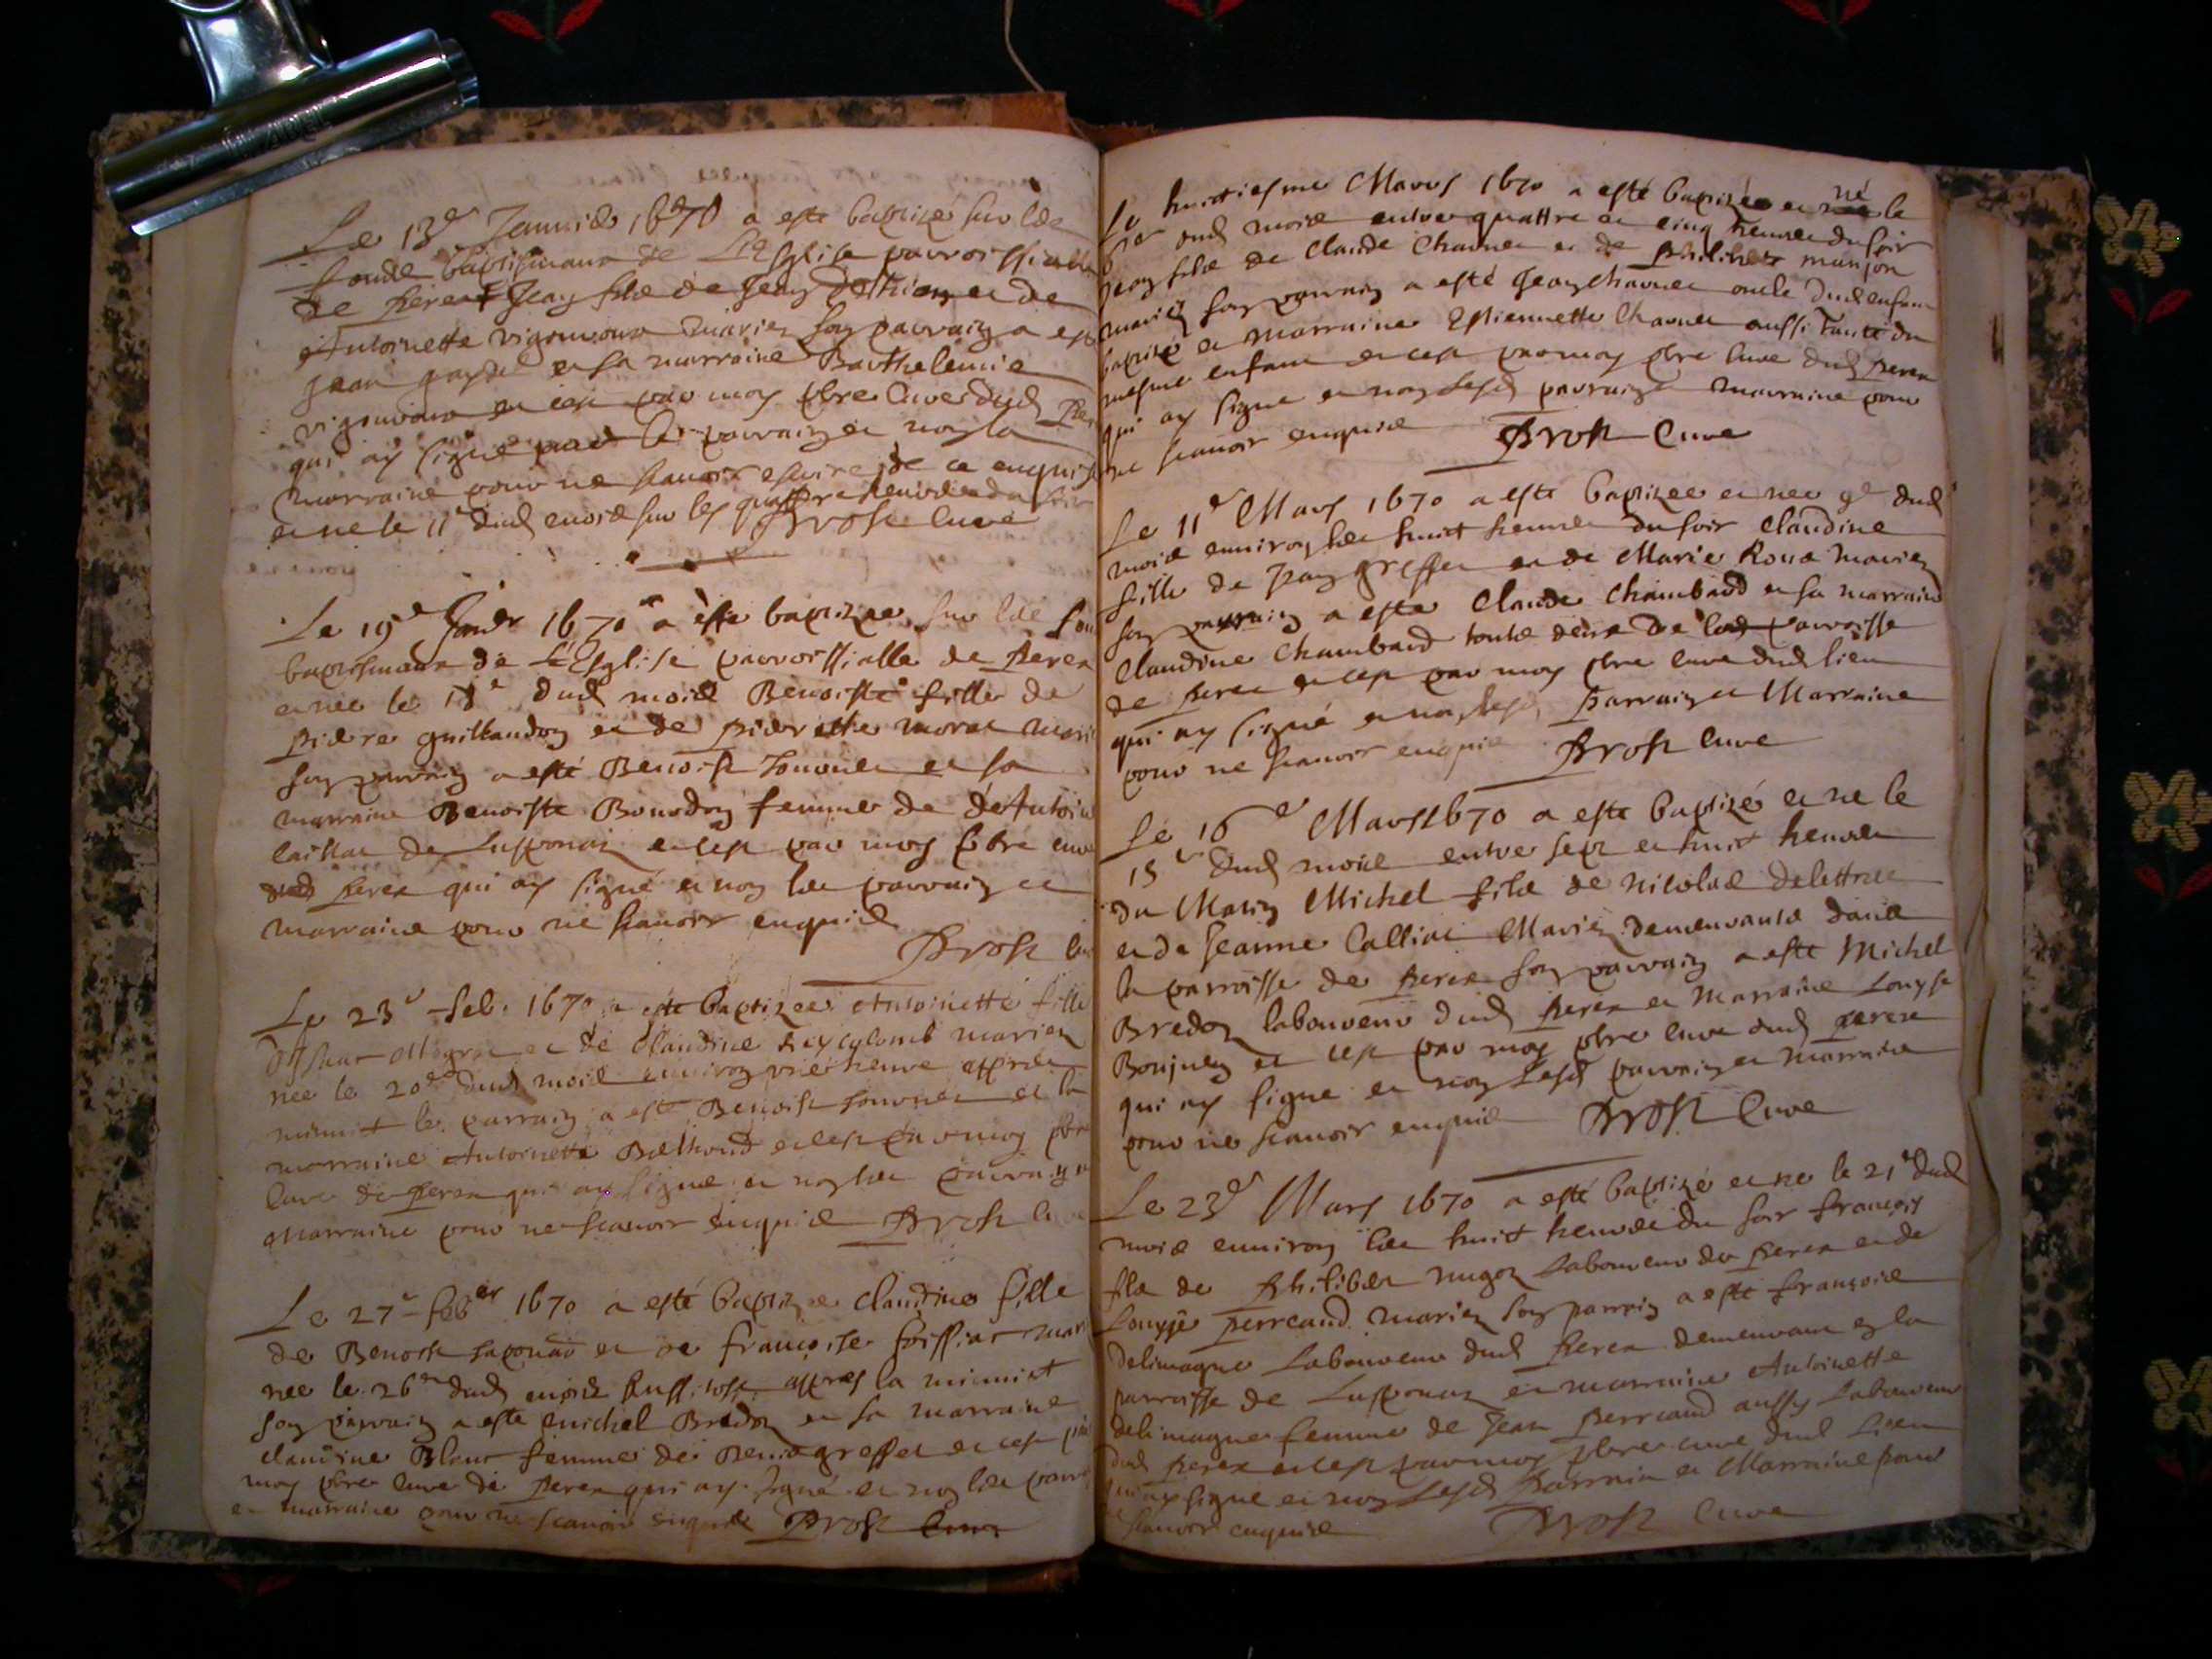 Le 13e Januie 1670 a este baptizé sur les
fonds baptismaux de L'Esglise parroissialle
de perex Jean filz de Jean et de
Antoinette vigouroux mariez son parrain a esté
Jean et sa marraine Barthelemie
vigouroux et cest par moy pbre Curé dud
qui ay signé le parrain et non la
marraine pour ne scauoir escrire de ce enquise
et ne le 11e dud mois sur les quattre heures du soir
Brosse Cure
Le 19e Janr 1670 a este baptizee sur les fon
baptismaux de L'Esglise parroissialle de perex
et nee le 18e dud mois Benoiste fille de
pierre guillaudon et de pierrette morat marie
son parrain a esté Benoist et sa
marraine Benoiste Bourdon femme de Antoine
de Lusponaz et cest par moy pbre cure
dud perex qui ay signé et non les parrain et
marraine pour ne scauoir enquis
Brosse Cu
Le 23e feb. 1670 a este baptizee Antoinette fille
et de Claudine mariez
nee le 20e dud mois enuiron vne heure appres
minuit le parrain a esté Benoist et la
marraine Antoinette et cest par moy pbre
Cure de perex qui ay signé et non les parrain et
Marraine pour ne scauoir enquis Brosse Cu
Le 27e feb er 1670 a esté baptizee Claudine fille
de Benoist et de francoise mari
nee le 26e dud mois appres la minuict
son parrain a este michel Bredon et sa marraine
claudine Blanc femme de greffet et cest par
moy pbre cure de perex qui ay signé et non les parr
et marraine pour ne scauoir enquis Brosse Cure
Le huictiesme Mars 1670 a esté baptizé et né le
dud mois entre quattre et cinq heures du soir
Jean filz de Claude Charner et de philiberte
mariez son parrain a esté Jean Charner oncle dud enfant
baptizé et marraine Estiennette Charner aussi tante du
mesme enfant et cest par moy pbre Cure dud perex
qui ay signé et non lesd parrain et marraine pour
ne scauoir enquis Brosse Cure
Le 11e Mars 1670 a esté baptizee et nee 9e dud
mois enuiron les huict heures du soir Claudine
fille de Jean greffet et de Marie Roux mariez
son parrain a esté Claude Chambard et sa marraine
Claudine Chambard toutz deux de lad parroisse
de perex et cest par moy pbre cure dud lieu
qui ay signé et non lesd parrain et Marraine
pour ne scauoir enquis Brosse Cure
Le 16e Mars 1670 a esté baptizé et ne le
15e dud mois entre sept et huict heures
du Matin Michel filz de nicolas delettree
et de Jeanne Calliat Mariez demeurants dans
la parroisse de perex son parrain a esté Michel
Bredon laboureur dud perex et Marraine Louyse
Bonjuez et cest par moy pbre Cure dud perex
qui ay signe et non lesd parrain et marraine
pour ne scauoir enquis Brosse Cure
Le 23e Mars 1670 a esté baptizé et ne le 21e dud
mois enuiron les huict heures du soir francois
filz de philibert nugoz laboureur de perex et de
Louyse perreaud mariez son parrain a esté francois
delimagne laboureur dud perex demeurant en la
parroisse de Lusponaz et marraine Antoinette
delimagne femme de Jean perreaud aussy laboureur
dud perex et cest par moy pbre cure dud Lieu
qui ay signe et non lesd parrain et Marraine pour
ne scauoir enquis Brosse Cure